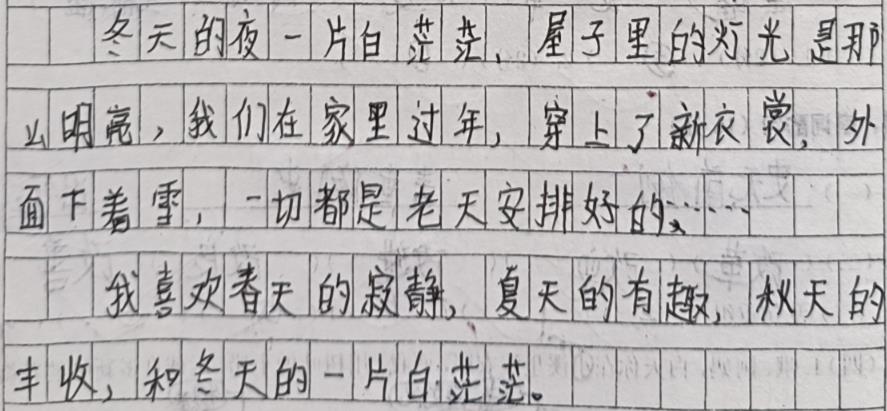 冬天的夜一片白茫茫、屋子里的灯光是那
么明亮，我们在家里过年，穿上了新衣裳，外
面下着雪，一切都是老天安排好的……
我喜欢春天的寂静，夏天的有趣，秋天的
丰收，和冬天的一片白茫茫。